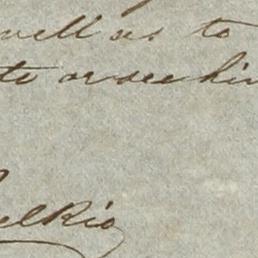 well as to
to or see him
elkio